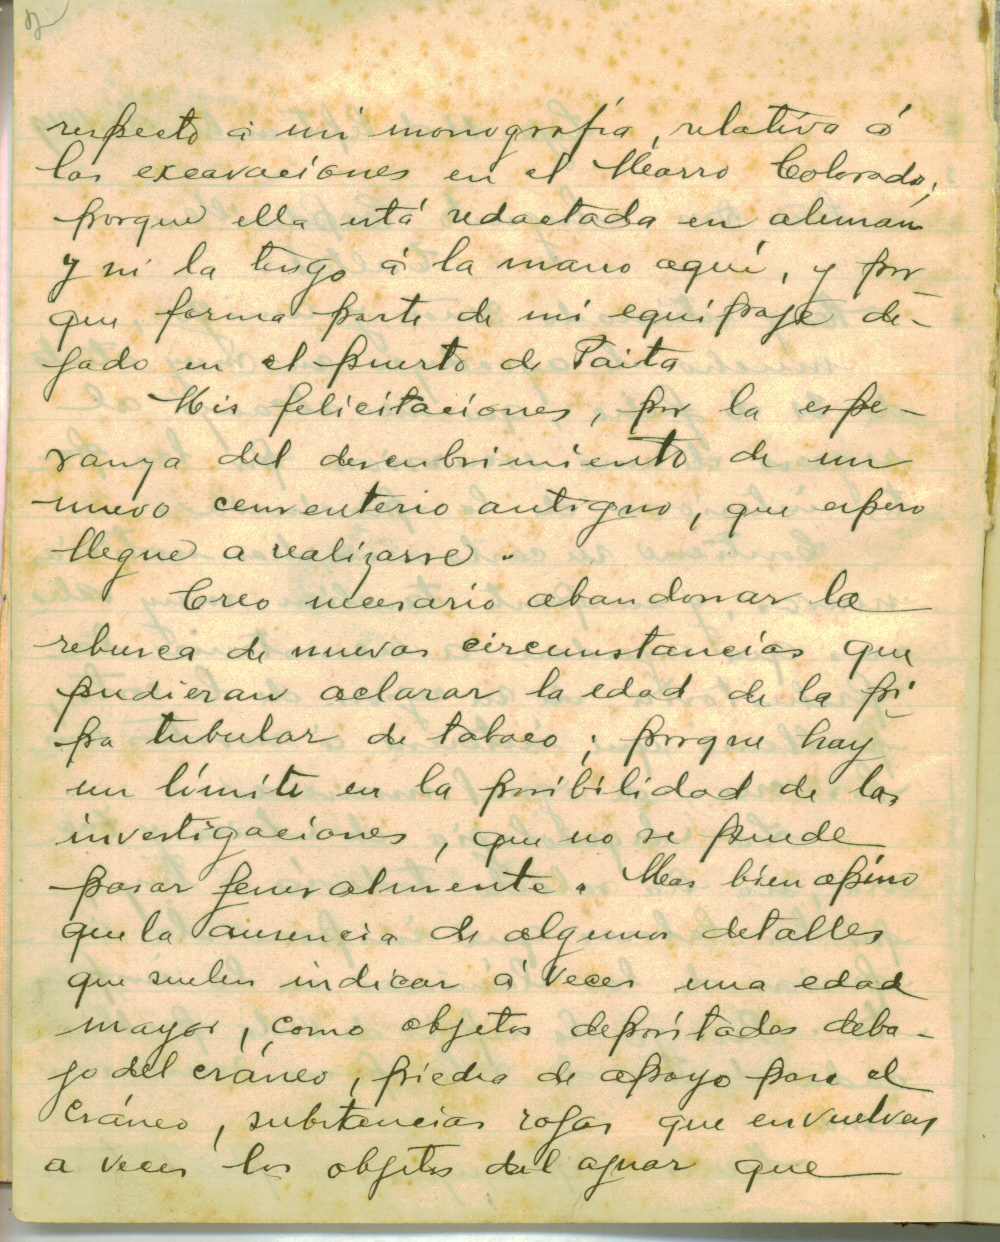 respecto á mi monografía, relativa á
las excavaciones en el Morro Colorado,
porque ella está redactada en alemán
y ni la tengo á la mano aquí, y por-
que forma parte de mi equipaje de-
jado en el puerto de Paita
Mis felicitaciones, por la espe-
ranza del descubrimiento de un
nuevo cementerio antiguo, que espero
llegue a realizarse.
Creo necesario abandonar la
rebusca de nuevas circunstancias que
pudieran aclarar la edad de la pi-
pa tubular de tabaco; porque hay
un límite en la posibilidad de las
investigaciones, que no se puede
pasar generalmente. Mas bien opino
que la ausencia de algunos detalles
que suelen indicar á veces una edad
mayor, como objetos depositados deba-
jo del cráneo, piedra de apoyo para el
cráneo, substancias rojas que envuelven
a veces los objetos del ajuar que